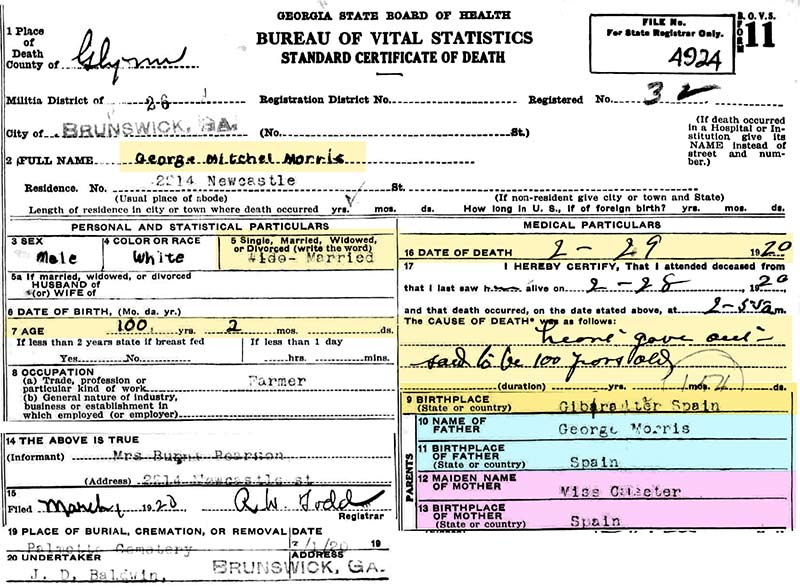 GEORGIA STATE BOARD OF HEALTH
BUREAU OF VITAL STATISTICS
STANDARD CERTIFICATE OF DEATH
FILE No.
For State Registrar Only.
4924
B.O.V.S.
FORM 11
1 Place of Death
County of Glynn
Militia District of 26 Registration District No. Registered No. 32
City of BRUNSWICK, GA. (No. St.)
(If death occurred in a Hospital or Institution give its NAME instead of street and number.)
2 FULL NAME George Mitchel Morris
Residence. No. 2214 Newcastle St.
(Usual place of abode) (If non-resident give city or town and State)
Length of residence in city or town where death occurred yrs. mos. ds. How long in U. S., if of foreign birth? yrs. mos. ds.
PERSONAL AND STATISTICAL PARTICULARS
3 SEX Male
4 COLOR OR RACE White
5 Single, Married, Widowed, or Divorced (write the word)
Married
5a If married, widowed, or divorced
HUSBAND of
(or) WIFE of
6 DATE OF BIRTH, (Mo. da. yr.)
7 AGE 100 yrs. 2 mos. ds.
If less than 2 years state if breast fed
Yes No
If less than 1 day
hrs. mins.
8 OCCUPATION
(a) Trade, profession or particular kind of work Farmer
(b) General nature of industry, business or establishment in which employed (or employer)
14 THE ABOVE IS TRUE
(Informant) Mrs Pearson
(Address) 2214 Newcastle st
15
Filed March, 1920 R. W. Todd
Registrar
19 PLACE OF BURIAL, CREMATION, OR REMOVAL DATE
Palmetto Cemetery 3/1/20 19
20 UNDERTAKER ADDRESS
J. D. Baldwin, BRUNSWICK, GA.
MEDICAL PARTICULARS
16 DATE OF DEATH 2 - 29 1920
17 I HEREBY CERTIFY, That I attended deceased from
that I last saw him alive on 2 - 28, 1920
and that death occurred, on the date stated above, at m.
The CAUSE OF DEATH* was as follows:
heart gave out -
said to be 100 years old
(duration) yrs. mos. ds.
154
9 BIRTHPLACE
(State or country) Gibaralter Spain
PARENTS
10 NAME OF FATHER George Morris
11 BIRTHPLACE OF FATHER
(State or country) Spain
12 MAIDEN NAME OF MOTHER Miss
13 BIRTHPLACE OF MOTHER
(State or country) Spain